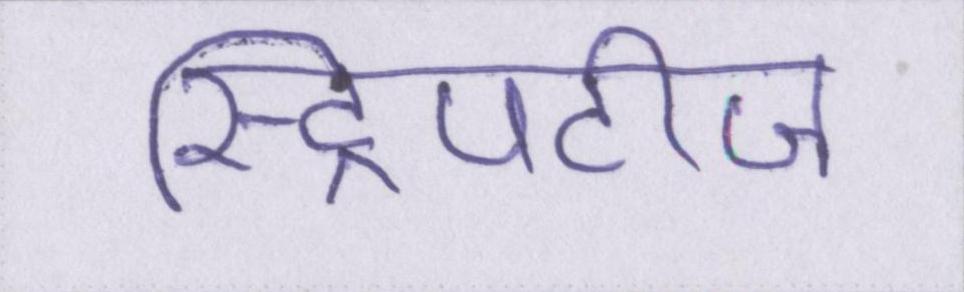 स्ट्रिपटीज